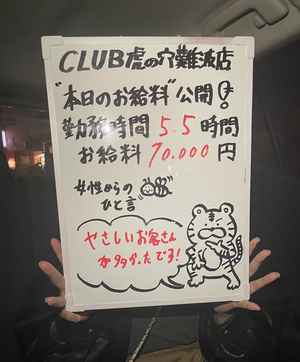 CLUB虎の穴難波店
"本日のお給料"公開!
勤務時間 5.5 時間
お給料 70.000 円
女性からの
ひと言
やさしいお客さん
が多かったでる!